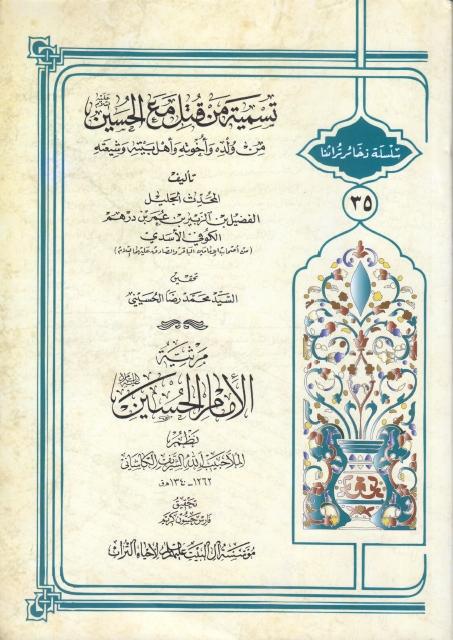 سلسلة ذخائر تراثنا
٣٥
تسمية من قتل مع الحسين عليه السلام
من ولده وأخوته وأهل بيته وشيعته
تأليف
المحدث الجليل
الفضيل بن الزبير بن عمر بن درهم
الكوفي الأسدي
(من أصحاب الإمامين الباقر والصادق عليهما السلام)
تحقيق
السيد محمد رضا الحسيني
مرثية
الإمام الحسين
نظم
الملا حبيب الله الشريف الكاشاني
١٢٦٢ - ١٣٤٠ هـ ق
تحقيق
فارس حسون كريم
مؤسسة آل البيت عليهم السلام لإحياء التراث